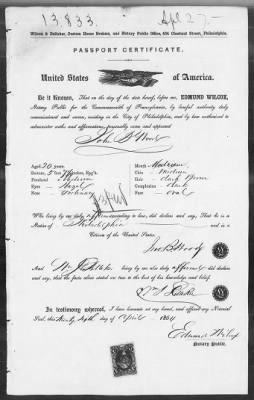 13,833. Apl 27
Wilcox & Belleker, Custom House Brokers, and Notary Public Office, 636 Chestnut Street, Philadelphia.
PASSPORT CERTIFICATE.
United States of America.
Be it Known, That on the day of the date hereof, before me, EDMUND WILCOX,
Notary Public for the Commonwealth of Pennsylvania, by lawful authority duly
commissioned and sworn, residing in the City of Philadelphia, and by law authorized to
administer oaths and affirmations, personally came and appeared
John B
Aged 30 years. Mouth Medium
Stature, 5 feet inches, Eng's. Chin Medium
Forehead Medium Hair Dark Brown
Eyes Hazel Complexion Dark
Nose Face Oval
Who being by me duly did declare and say, That he is a
Native of Philadelphia
Citizen of the United States.
B
And being by me also duly affirmed did declare
and say, that the facts above stated are true to the best of his knowledge and belief.
In testimony whereof, I have hereunto set my hand, and affixed my Notarial
Seal, this twenty sixth day of April 1864
Edmund Wilcox
Notary Public.